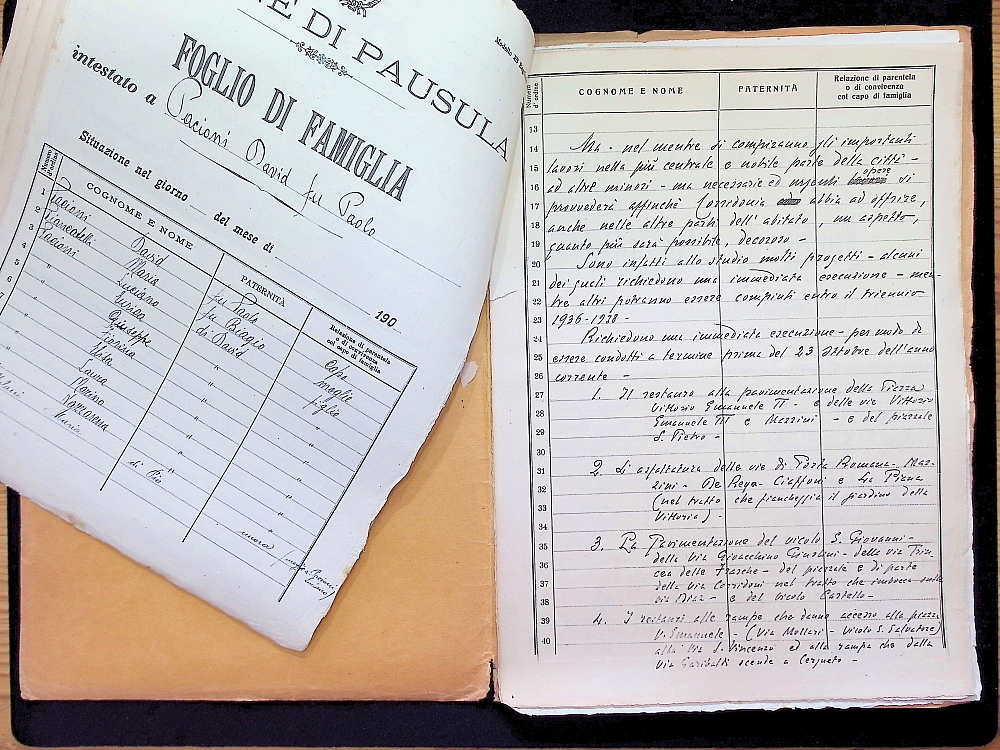 E DI PAUSULA
Modello
FOGLIO DI FAMIGLIA
intestato a Pacioni David fu Paolo
Situazione nel giorno del mese di 190
Numero d'ordine
COGNOME E NOME
PATERNITÀ
Relazione di parentela o di convivenza col capo di famiglia
1 Pacioni David fu Paolo Capo
2 Biancatelli Maria fu Biagio moglie
3 Pacioni Luciano di David figlio
4 " Enrica " "
5 " Giuseppe " "
6 " "
7 " "
Laura
Marino
Maria
di Pio nuora
Numero d'ordine
COGNOME E NOME
PATERNITÀ
Relazione di parentela
o di convivenza
col capo di famiglia
13
14 Ma - nel mentre si compiranno gli importanti
15 lavori nella più centrale e nobile parte della città -
16 ad altre minori - ma necessarie ed urgenti opere si
17 provvederà affinchè Corridonia abbia ad offrire,
18 anche nelle altre parti dell'abitato, un aspetto,
19 quanto più sarà possibile, decoroso -
20 Sono infatti allo studio molti progetti - alcuni
21 dei quali richiedono una immediata esecuzione - men-
22 tre altri potranno essere compiuti entro il triennio
23 1936-1938 -
24 Richiedono una immediata esecuzione - per modo di
25 essere condotti a termine prima del 23 ottobre dell'anno
26 corrente -
27 1. Il restauro alla pavimentazione della Piazza
28 Vittorio Emanuele II - e delle vie Vittorio
29 Emanuele III e Mazzini - e del piazzale
30 S. Pietro -
31 2. L'asfaltatura delle vie di Porta Romana - Maz-
32 zini - De Reya - Ciaffoni e La Piana
33 (nel tratto che fiancheggia il giardino della
34 Vittoria) -
35 3. La Pavimentazione del vicolo S. Giovanni -
36 della Via Gioacchino - della via Trin-
37 cea delle Frasche - del piazzale e di parte
della via Corridoni nel tratto che imbocca sulla
38 via Diaz - e del vicolo Castello -
39 4. I restauri alle rampe che danno accesso alla piazza
40 V. Emanuele - (Via Mollari - Vicolo S. Salvatore)
alla Via S. Vincenzo ed alla rampa che dalla
via Garibaldi scende a Cerqueto -